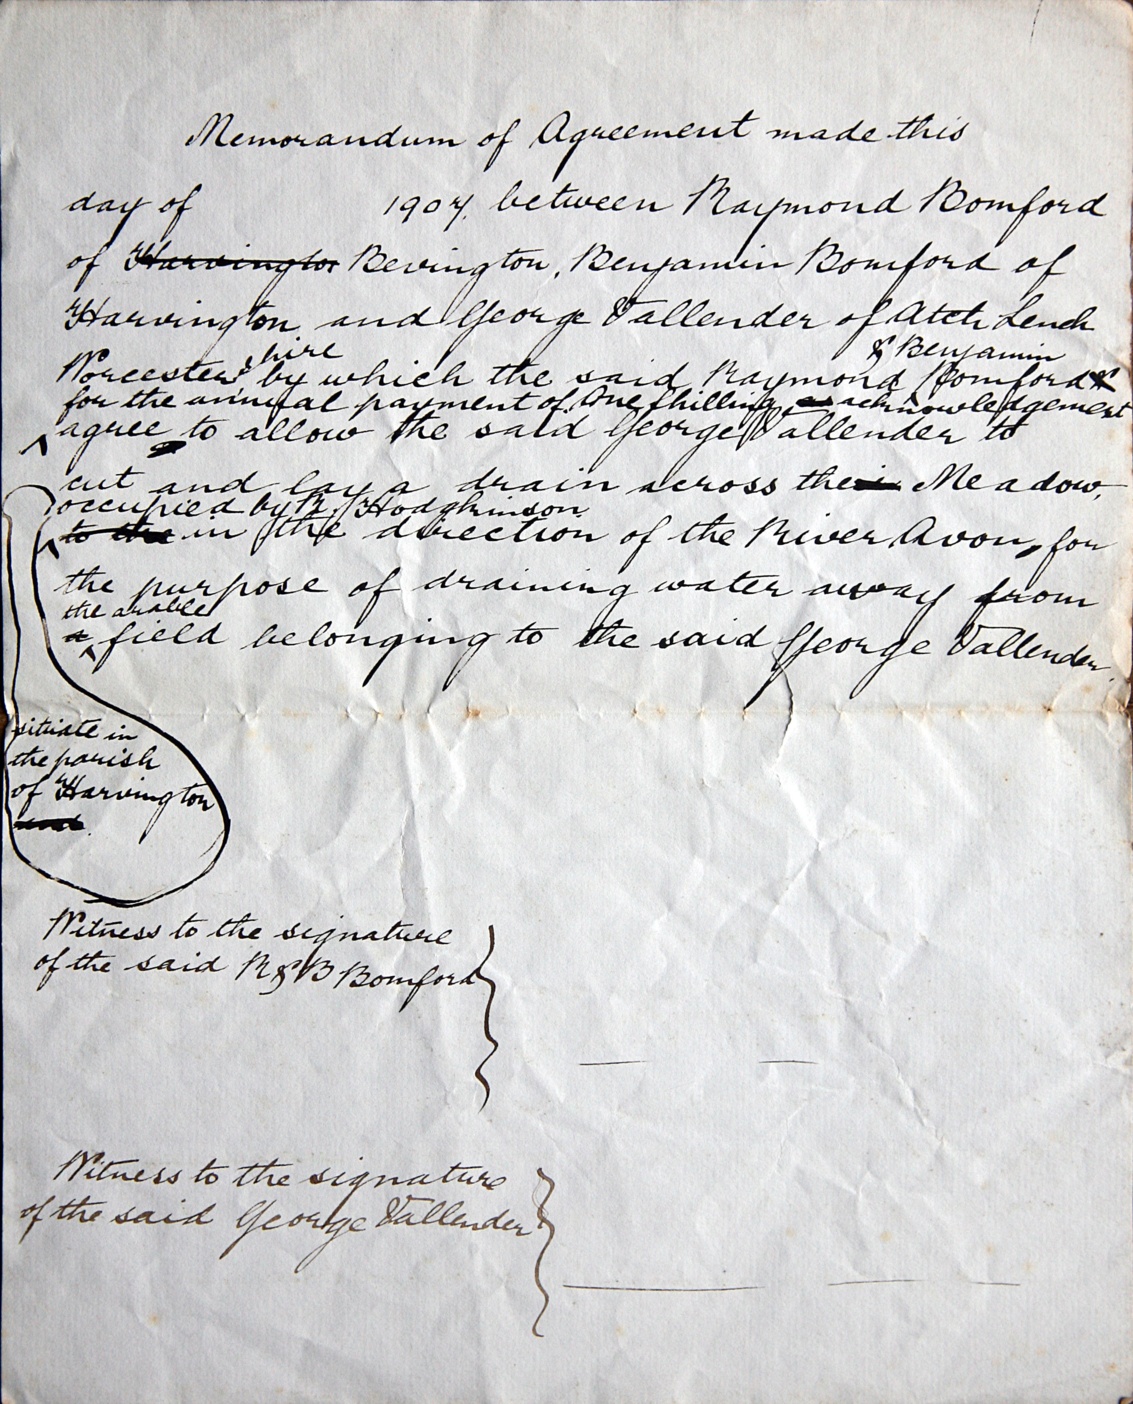 Memorandum of Agreement made this
day of 1907. between Raymond Bomford
of Harvington Bevington, Benjamin Bomford of
Harvington and George Vallender of Atch Lench
hire & Benjamin
Worcesters by which the said Raymond Bomford &
for the annual payment of One Shilling, as acknowledgement
agree to allow the said George Vallender to
cut and lay a drain across their Meadow,
occupied by R. Hodgkinson
to the in the direction of the River Avon, for
the purpose of draining water away from
the arable
a field belonging to the said George Vallender.
situate in
the parish
of Harvington
and
Witness to the signature
of the said R & B Bomford
Witness to the signature
of the said George Vallender